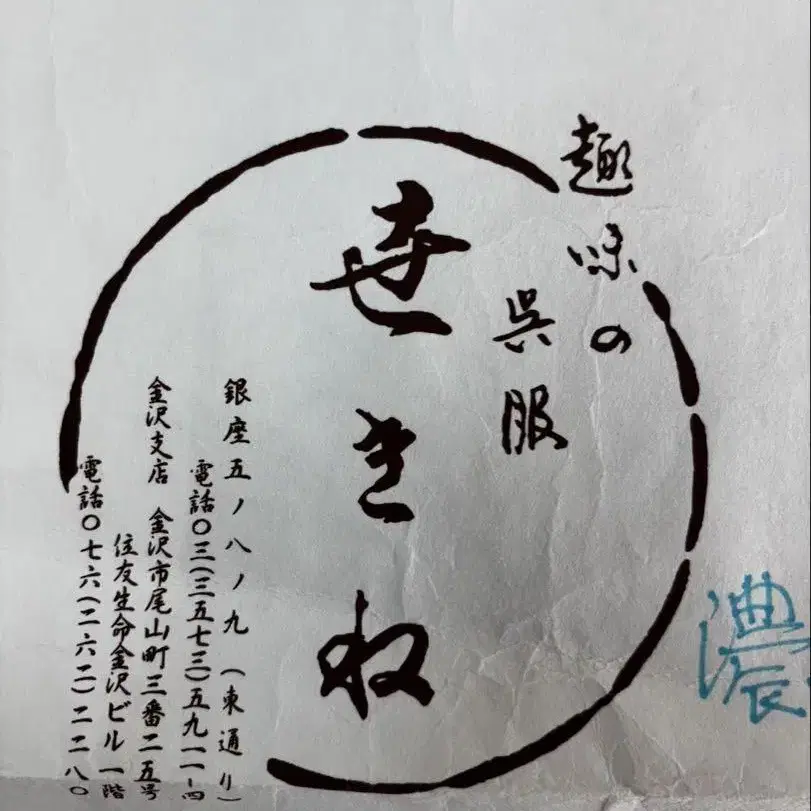 趣味の
呉服
世きね
銀座五ノ八ノ九(東通り)
電話〇三(三五七三)五九一一〜四
金沢支店 金沢市尾山町三番二五号
住友生命金沢ビル一階
電話〇七六(二六二)二二八〇
濃